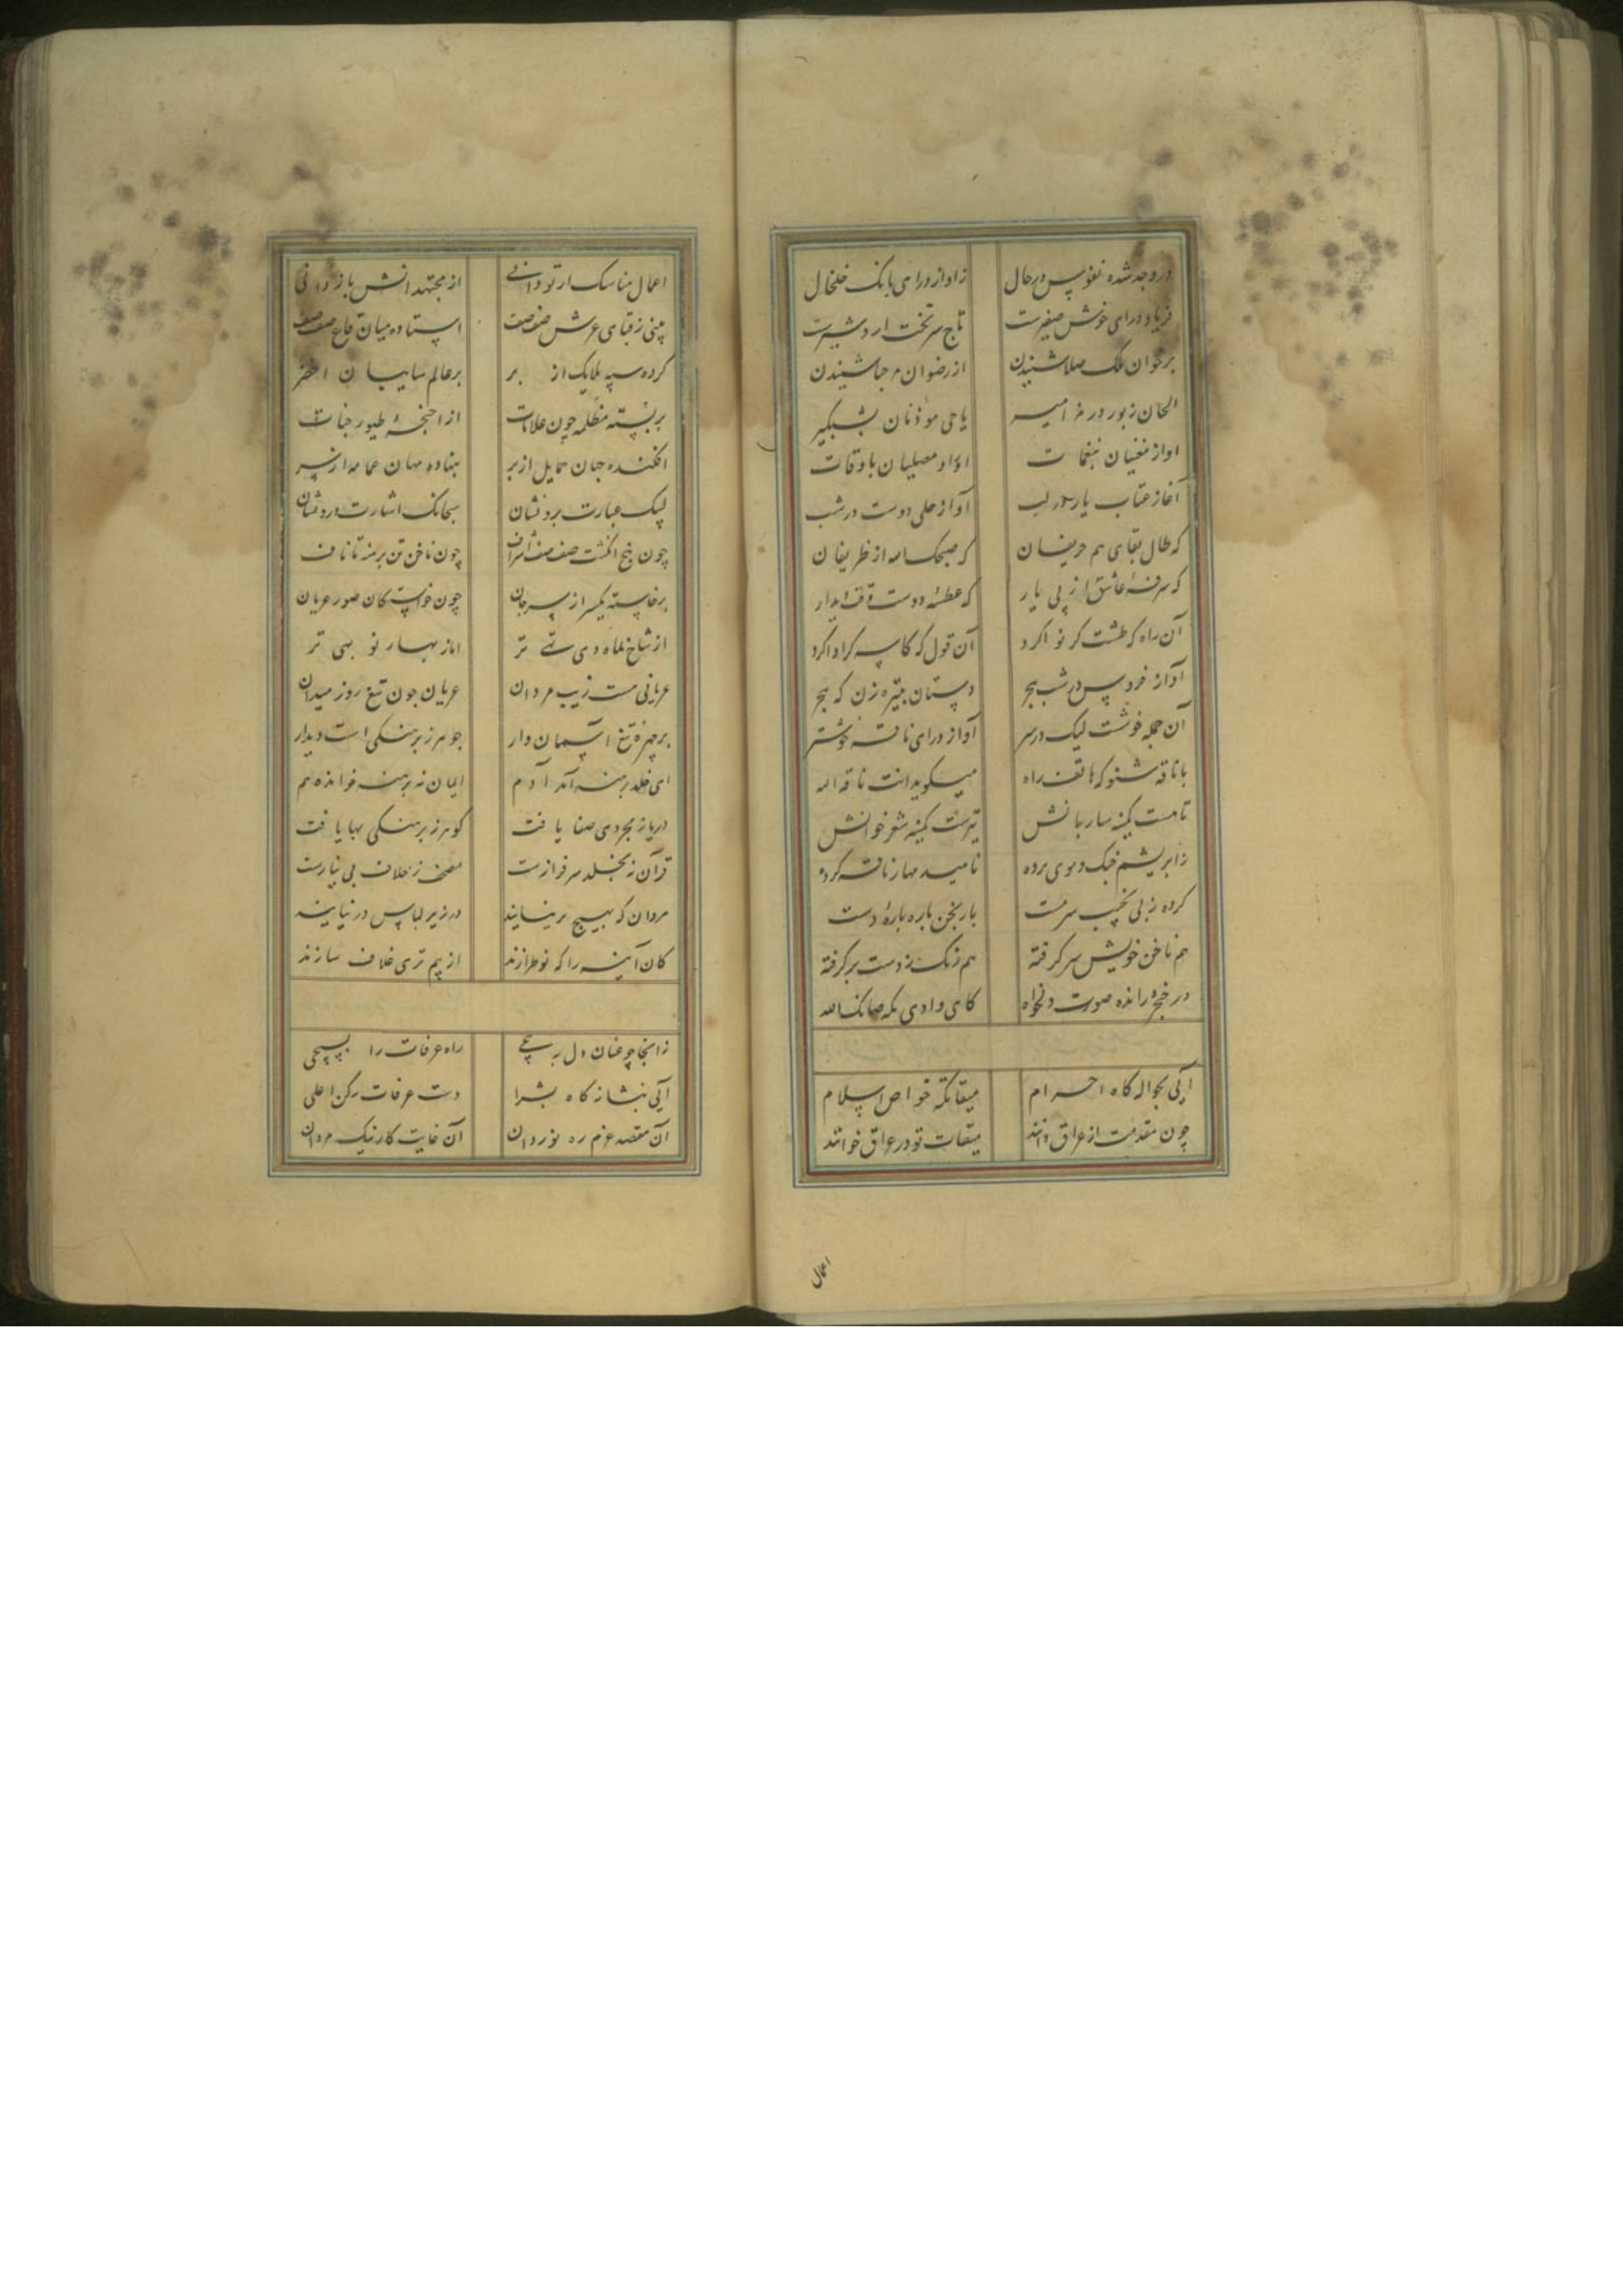 در وجد شده نفوس در حال
زاواز درای بانک خلخال
فریاد درای خوش صفیرست
تاج سر تخت اردشیرست
بر خوان ملک صلا شنیدن
از رضوان مرحبا شنیدن
الحان زبور در مزامیر
یا حی موذنان شبگیر
اواز مغنیان بنغمات
اواز مصلیان باوقات
آغاز عتاب یار در لب
آواز حلی دوست در شب
که طال بقای هم حریفان
که صبحک اسه از ظریفان
که سرفهٔ عاشق از پی یار
که عطسهٔ دوست وقت
آن راه که طشت کر نو اکرد
آن قول که کاسه کر ادا کرد
آواز خروس در شب هجر
دستان تبیره زن که هجر
آن جمله خوشست لیک در سر
آواز درای ناقه خوشتر
با ناقه شنو که هاتف راه
میکوید انت ناقه الله
تا مست کمینه ساربانش
تیرست کمینه شعر خوانش
زابریشم چنک و موی برده
نامید مهار ناقه کرده
کرده ز پی نجیب سرمست
باربخن باره بارهٔ دست
هم ناخن خویش سر کرفته
هم زنک ز دست بر کرفته
در خنجره رانده صورت دلخواه
کای وادی مکه صانک الله
آیی بحواله کاه احرام
میقاتکه خواص اسلام
چون مقدمت از عراق دانند
میقات تو در عراق خوانند
اعمال
اعمال مناسک ار تو دانی
از مجتهدانش باز دانی
بینی ز قبای عرش صف صف
استاده میان قاع صفصف
کرده سپه ملایک از بر
بر عالم سایبان اخضر
بربسته مظلمه چون علامات
از اجنحهٔ طیور جنات
افکنده جهان حمایل از بر
بنهاده مهان عمامه از سر
لبیک عبارت بروشان
سبحانک اشارت دروشان
چون پنج انکشت صف صف اشراف
چون ناخن تن برهنه تا ناف
برخاسته یکسر از سر جان
چون خواست کان صور عریان
از شاخ بماه دی تهی تر
اما ز بهار نو بهی تر
عریانی هست زیب مردان
عریان چون تیغ روز میدان
بر چهرهٔ تیغ آسمان وار
جوهر ز برهنکی است دیدار
ای خلد برهنه آمد آدم
ایمان نه برهنه خوانده هم
دریا ز مجردی صفا یافت
کوهر ز برهنکی بها یافت
قرآن نه بجلد سرفرازست
مصحف ز غلاف بی نیازست
مردان که بسیج برنسایند
در زیر لباس در نیایند
کان آینه را که نو طرازند
از بیم تری غلاف سازند
زانجا چو عنان دل بپیچی
راه عرفات را بسیچی
آیی بنشانه کاه بشرا
دست عرفات رکن اعلی
آن مقصد عزم ره نوردان
آن غایت کار نیک مردان